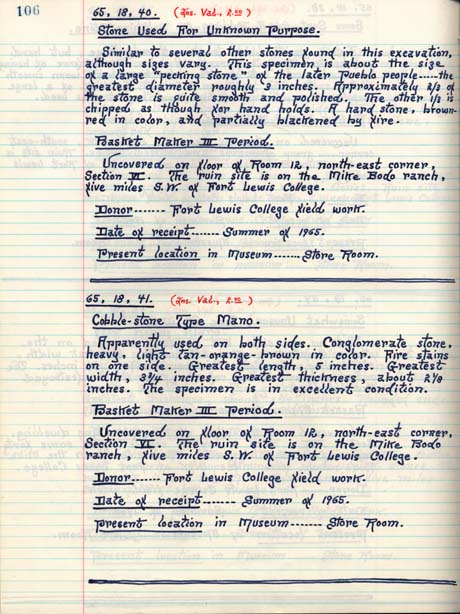 106
65, 18, 40. (Ins. Val., 2.00)
Stone Used For Unknown Purpose.
Similar to several other stones found in this excavation,
although sizes vary. This specimen is about the size
of a large "pecking stone" of the later Pueblo people----the
greatest diameter roughly 3 inches. Approximately 2/3 of
the stone is quite smooth and polished. The other 1/3 is
chipped as though for hand holds. A hand stone, brown-
red in color, and partially blackened by fire.
Basket Maker III Period.
Uncovered on floor of Room 12, north-east corner,
Section VI. The ruin site is on the Mike Bodo ranch,
five miles S.W. of Fort Lewis College.
Donor------- Fort Lewis College field work.
Date of receipt------- Summer of 1965.
Present location in Museum------- Store Room.
65, 18, 41. (Ins. Val., 2.00)
Cobble-stone Type Mano.
Apparently used on both sides. Conglomerate stone,
heavy, light tan-orange-brown in color. Fire stains
on one side. Greatest length, 5 inches. Greatest
width, 3 3/4 inches. Greatest thickness, about 2 1/8
inches. The specimen is in excellent condition.
Basket Maker III Period.
Uncovered on floor of Room 12, north-east corner,
Section VI. The ruin site is on the Mike Bodo
ranch, five miles S.W. of Fort Lewis College.
Donor------- Fort Lewis College field work.
Date of receipt------- Summer of 1965.
Present location in Museum------- Store Room.